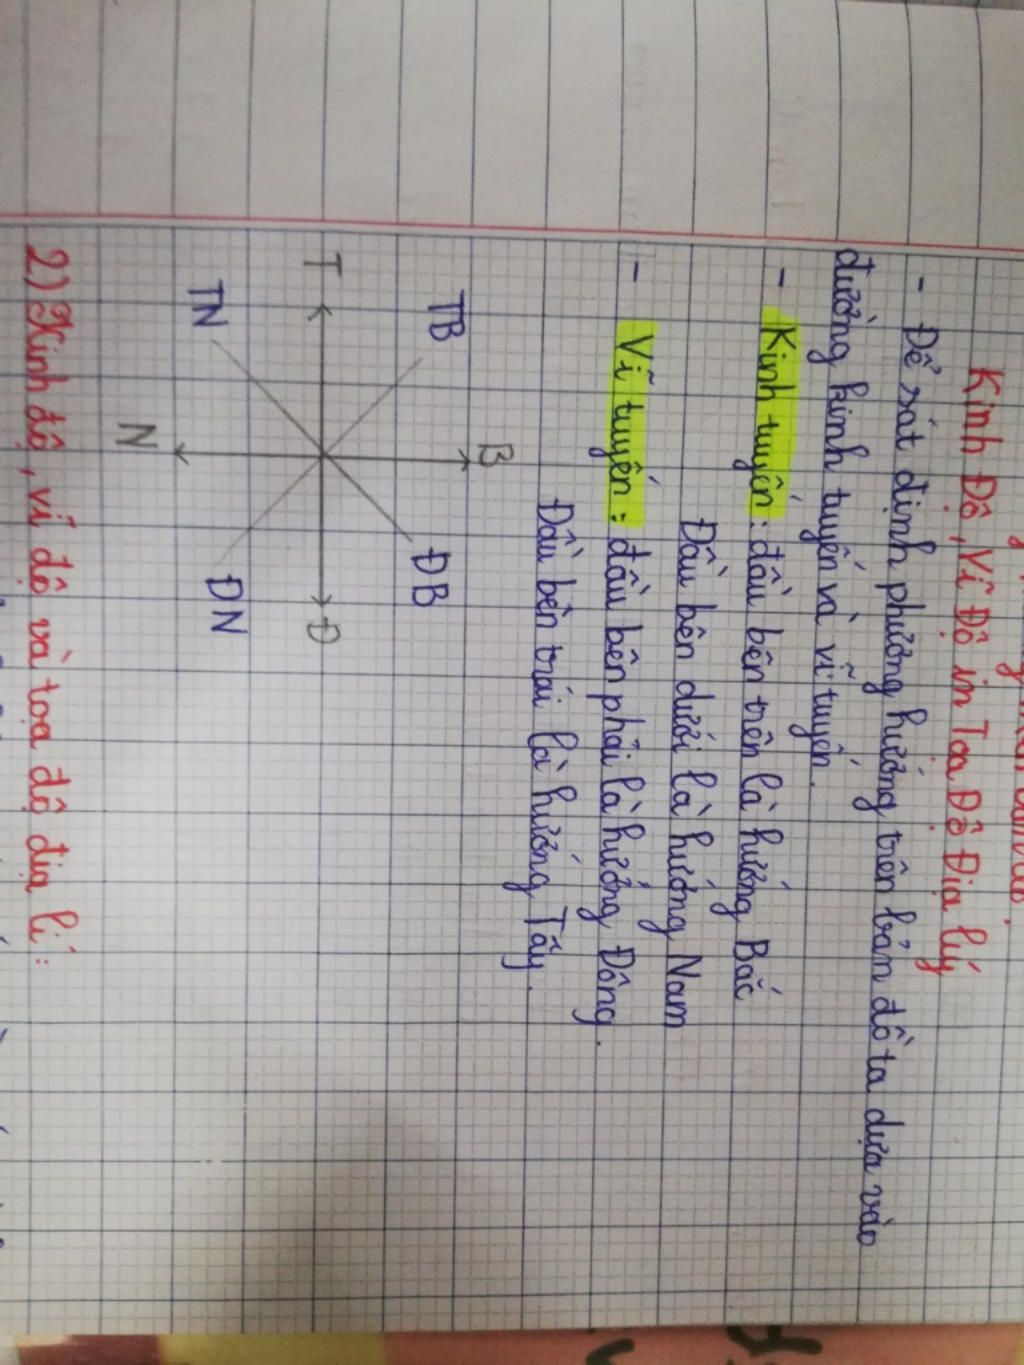 Kinh Độ, Vĩ Độ in Toạ Độ Địa lý
- Để sát định phương hướng trên bản đồ ta dựa vào
đường kinh tuyến và vĩ tuyến.
- Kinh tuyến: đầu bên trên là hướng Bắc
Đầu bên dưới là hướng Nam
- Vĩ tuyến: đầu bên phải là hướng Đông.
Đầu bên trái là hướng Tây.
B
TB ĐB
T Đ
TN ĐN
N
2) Kinh độ, vĩ độ và toạ độ địa lí: